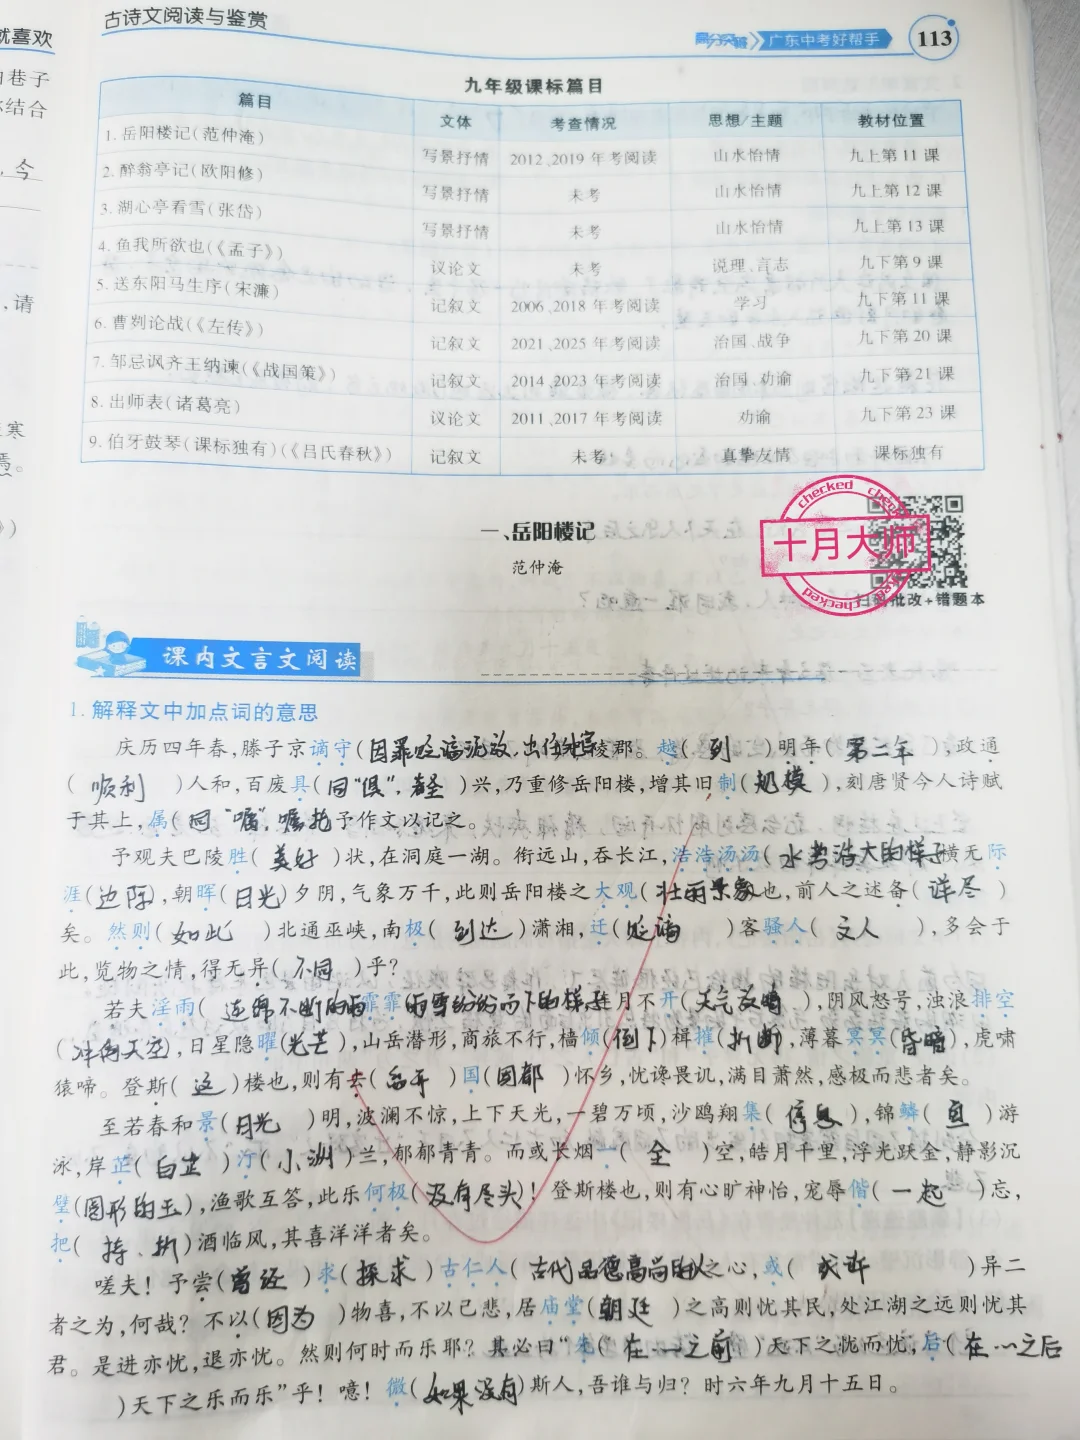 就喜欢
古诗文阅读与鉴赏
高分突破
广东中考好帮手
113
九年级课标篇目
篇目 文体 考查情况 思想/主题 教材位置
1. 岳阳楼记(范仲淹) 写景抒情 2012、2019 年考阅读 山水怡情 九上第 11 课
2. 醉翁亭记(欧阳修) 写景抒情 未考 山水怡情 九上第 12 课
3. 湖心亭看雪(张岱) 写景抒情 未考 山水怡情 九上第 13 课
4. 鱼我所欲也(《孟子》) 议论文 未考 说理、言志 九下第 9 课
5. 送东阳马生序(宋濂) 记叙文 2006、2018 年考阅读 学习 九下第 11 课
6. 曹刿论战(《左传》) 记叙文 2021、2025 年考阅读 治国、战争 九下第 20 课
7. 邹忌讽齐王纳谏(《战国策》) 记叙文 2014、2023 年考阅读 治国、劝谕 九下第 21 课
8. 出师表(诸葛亮) 议论文 2011、2017 年考阅读 劝谕 九下第 23 课
9. 伯牙鼓琴(课标独有)(《吕氏春秋》) 记叙文 未考 真挚友情 课标独有
巷子
结合
,今
,请
寒
焉。
一、岳阳楼记
范仲淹
checked
十月大师
checked
扫码批改+错题本
课内文言文阅读
1. 解释文中加点词的意思
庆历四年春,滕子京谪守(因罪贬谪流放,出任外官陵郡。越( 到 )明年( 第二年 ),政通
( 顺利 )人和,百废具( 同“俱”,全 )兴,乃重修岳阳楼,增其旧制( 规模 ),刻唐贤今人诗赋
于其上,属( 同“嘱”,嘱托予作文以记之。
予观夫巴陵胜( 美好 )状,在洞庭一湖。衔远山,吞长江,浩浩汤汤( 水势浩大的样子横无际
涯(边际),朝晖(日光)夕阴,气象万千,此则岳阳楼之大观(壮丽景象也,前人之述备( 详尽 )
矣。然则( 如此 )北通巫峡,南极( 到达 )潇湘,迁( 贬谪 )客骚人( 文人 ),多会于
此,览物之情,得无异( 不同 )乎?
若夫淫雨( 连绵不断的雨霏霏 雨雪纷纷而下的样子连月不开( 天气放晴 ),阴风怒号,浊浪排空
( 冲向天空),日星隐曜(光芒),山岳潜形,商旅不行,樯倾(倒下)楫摧(折断),薄暮冥冥(昏暗),虎啸
猿啼。登斯( 这 )楼也,则有去( 离开 )国( 国都 )怀乡,忧谗畏讥,满目萧然,感极而悲者矣。
至若春和景( 日光 )明,波澜不惊,上下天光,一碧万顷,沙鸥翔集( 停息 ),锦鳞( 鱼 )游
泳,岸芷( 白芷 )汀( 小洲 )兰,郁郁青青。而或长烟一( 全 )空,皓月千里,浮光跃金,静影沉
璧(圆形的玉),渔歌互答,此乐何极(没有尽头)!登斯楼也,则有心旷神怡,宠辱偕( 一起 )忘,
把( 持、执 )酒临风,其喜洋洋者矣。
嗟夫!予尝( 曾经 )求( 探求 )古仁人( 古代品德高尚的人之心,或( 或许 )异二
者之为,何哉?不以(因为 )物喜,不以己悲,居庙堂( 朝廷 )之高则忧其民,处江湖之远则忧其
君。是进亦忧,退亦忧。然则何时而乐耶?其必曰“先( 在……之前 )天下之忧而忧,后( 在……之后
)天下之乐而乐”乎!噫!微( 如果没有)斯人,吾谁与归?时六年九月十五日。